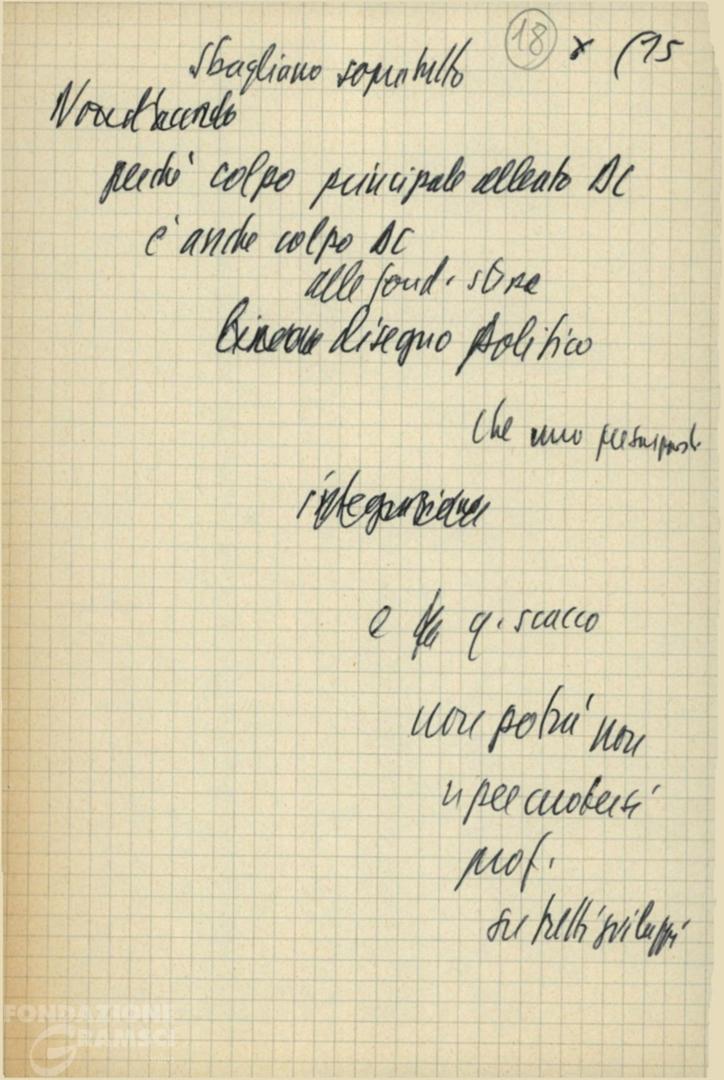 18 x (15
Sbagliano sopratutto
Non d'accordo
perché colpo principale alleato DC
è anche colpo DC
alle fond. stesse
disegno politico
che uno
integrazione
e q. scacco
non potrà non
ripercuotersi
prof.
su tutti sviluppi
FONDAZIONE
GRAMSCI